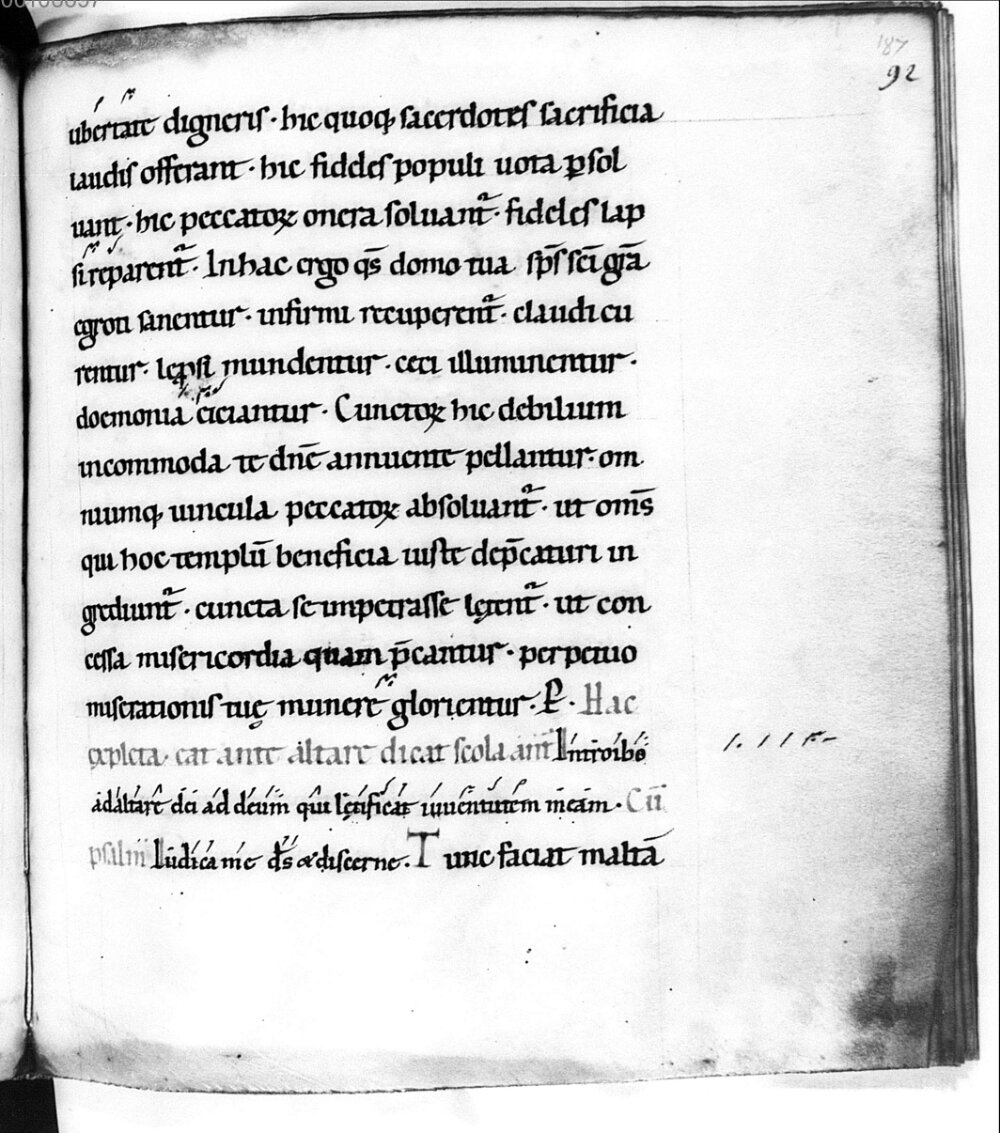 187
92
ubertate digneris · hic quoq; sacerdotes sacrificia
laudis offerant · hic fideles populi uota ꝑsol
uant · hic peccatoꝝ onera soluant᷑ · fideles lap
si reparent᷑ · In hac ergo q̄s domo tua sp̄s sc̄i gr̄a
egroti sanentur · infirmi recuperent᷑ · claudi cu
rentur · lep̱si mundentur · ceci illuminentur ·
doemonia eiciantur · Cunctoꝝ hic debilium
incommoda te dn̄e annuente pellantur · om
niumq; uincula peccatoꝝ absoluant᷑ · ut om̄s
qui hoc templū beneficia iuste dep̄caturi in
grediunt᷑ · cuncta se impetrasse lętent᷑ · ut con
cessa misericordia quam p̄cantur · perpetuo
miserationis tuę munere glorientur · P̱ · Hac
expleta · eat ante altare dicat scola ant̄ Introibo
ad altare dei ad deum qui lętificat iuuentutem meam · Cū
psalm Iudica me d̄s & discerne · Tunc faciat maltā